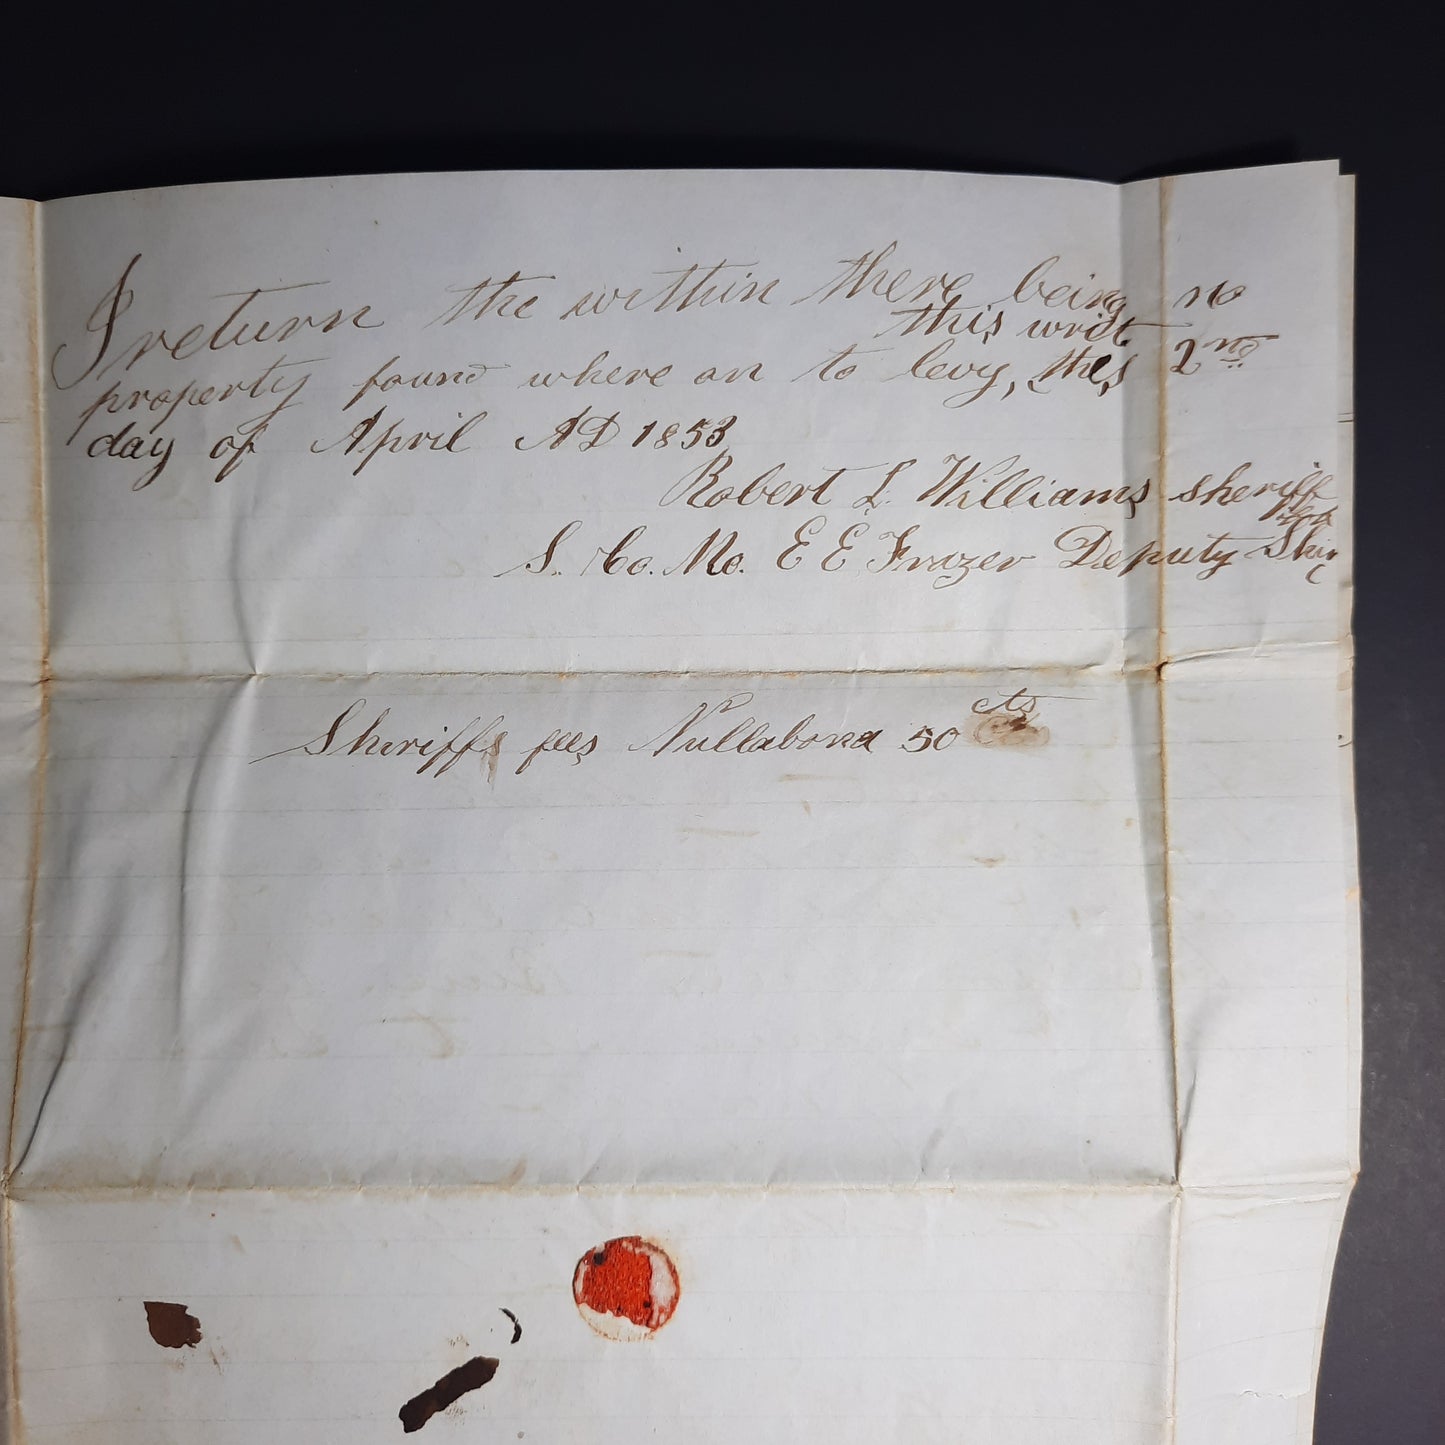 I return the within there being no
this writ
property found where on to levy, this 2nd
day of April AD 1853
Robert L. Williams sheriff
S. Co. Mo. E E Frazer Deputy
Sheriffs fees Nullabona 50 cts